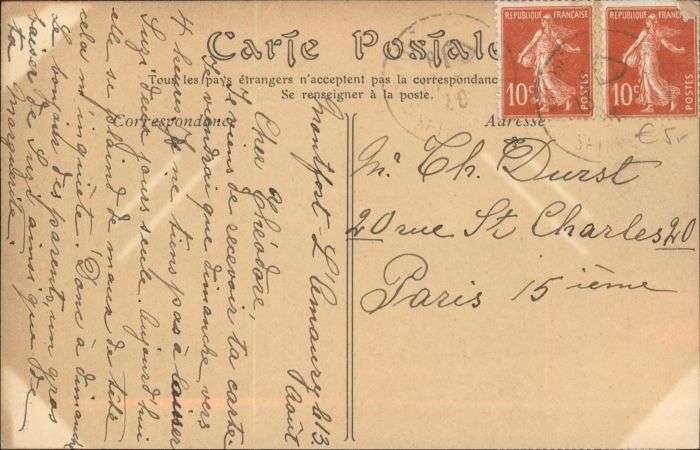 Carte Postale
Tous les pays étrangers n'acceptent pas la correspondance
Se renseigner à la poste.
Correspondance
Adresse
REPUBLIQUE FRANÇAISE
10c
POSTES
REPUBLIQUE FRANÇAISE
10c
POSTES
€ 5.-
Mr. Th. Durst
20 rue St Charles 20
Paris 15ième
Montfort L'Amaury le 13
Août
Cher Théodore,
Je viens de recevoir ta carte.
Je viendrai que dimanche vers
4 heures. Je ne tiens pas à laisser
Suzi deux jours seule. Aujourd'hui
elle se plaind de maux de tête
cela m'inquiète. Donc à dimanche
Le bonjour des parents, un gros
baiser de Suzi ainsi que de
ta Marguerite.